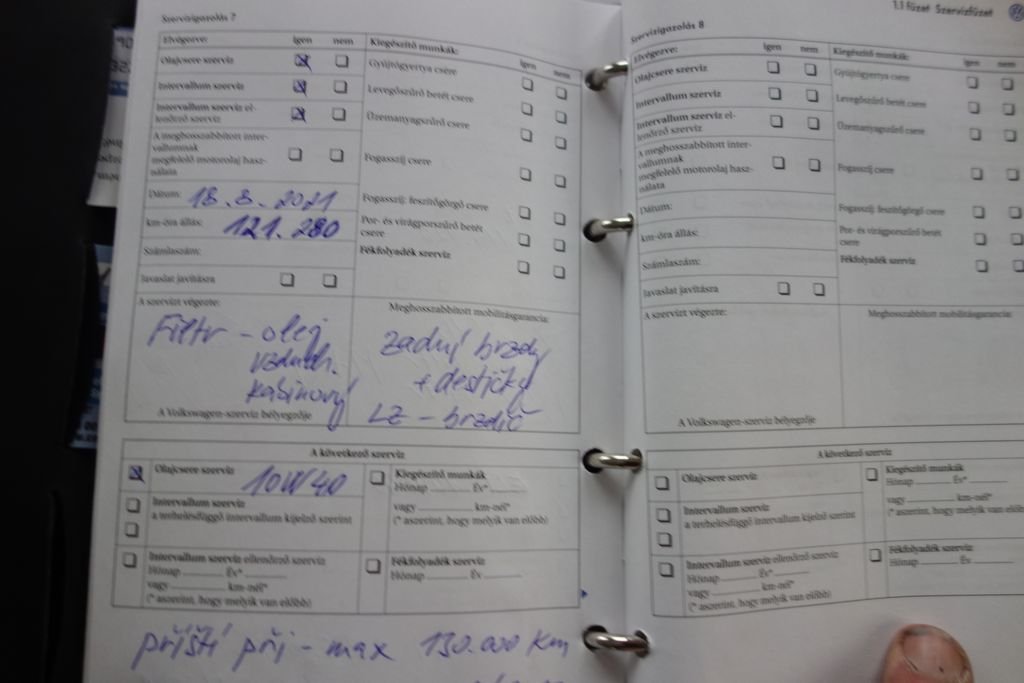 Szervizigazolás 7
Elvégezve: igen nem
Olajcsere szerviz
Intervallum szerviz
Intervallum szerviz el-
lenőrző szerviz
A meghosszabbított inter-
vallumnak
megfelelő motorolaj hasz-
nálata
Dátum: 18. 8. 2021
km-óra állás: 121. 280
Számlaszám:
Javaslat javításra
Kiegészítő munkák:
igen nem
Gyújtógyertya csere
Levegőszűrő betét csere
Üzemanyagszűrő csere
Fogasszíj csere
Fogasszíj: feszítőgörgő csere
Por- és virágporszűrő betét
csere
Fékfolyadék szerviz
A szervizt végezte:
Filtr - olej
vzduch.
kabinový
A Volkswagen-szerviz bélyegzője
Meghosszabbított mobilitásgarancia:
zadní brzdy
+ destičky
LZ - brzdič
A következő szerviz
Olajcsere szerviz 10W40
Intervallum szerviz
a terhelésfüggő intervallum kijelző szerint
Intervallum szerviz ellenőrző szerviz
Hónap Év*
vagy km-nél*
(* aszerint, hogy melyik van előbb)
Kiegészítő munkák
Hónap Év*
vagy km-nél*
(* aszerint, hogy melyik van előbb)
Fékfolyadék szerviz
Hónap Év
příští při - max 130.000 km
1.1 füzet Szervizfüzet
Szervizigazolás 8
Elvégezve: igen nem
Olajcsere szerviz
Intervallum szerviz
Intervallum szerviz el-
lenőrző szerviz
A meghosszabbított inter-
vallumnak
megfelelő motorolaj hasz-
nálata
Dátum:
km-óra állás:
Számlaszám:
Javaslat javításra
Kiegészítő munkák:
igen nem
Gyújtógyertya csere
Levegőszűrő betét csere
Üzemanyagszűrő csere
Fogasszíj csere
Fogasszíj: feszítőgörgő csere
Por- és virágporszűrő betét
csere
Fékfolyadék szerviz
A szervizt végezte:
A Volkswagen-szerviz bélyegzője
Meghosszabbított mobilitásgarancia:
A következő szerviz
Olajcsere szerviz
Intervallum szerviz
a terhelésfüggő intervallum kijelző szerint
Intervallum szerviz ellenőrző szerviz
Hónap Év*
vagy km-nél*
(* aszerint, hogy melyik van előbb)
Kiegészítő munkák
Hónap Év*
vagy km-nél*
(* aszerint, hogy melyik van előbb)
Fékfolyadék szerviz
Hónap Év